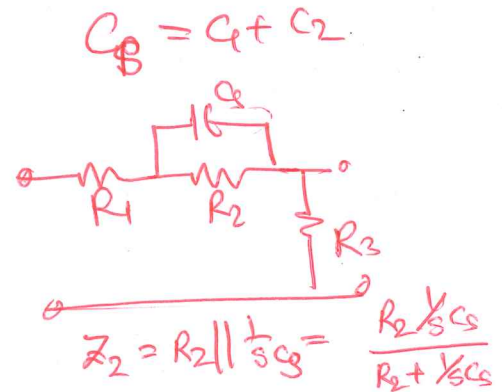 C_s = C_1 + C_2
C_s
R_1 R_2
R_3
Z_2 = R_2 || 1/sC_s = (R_2 1/sC_s)/(R_2 + 1/sC_s)